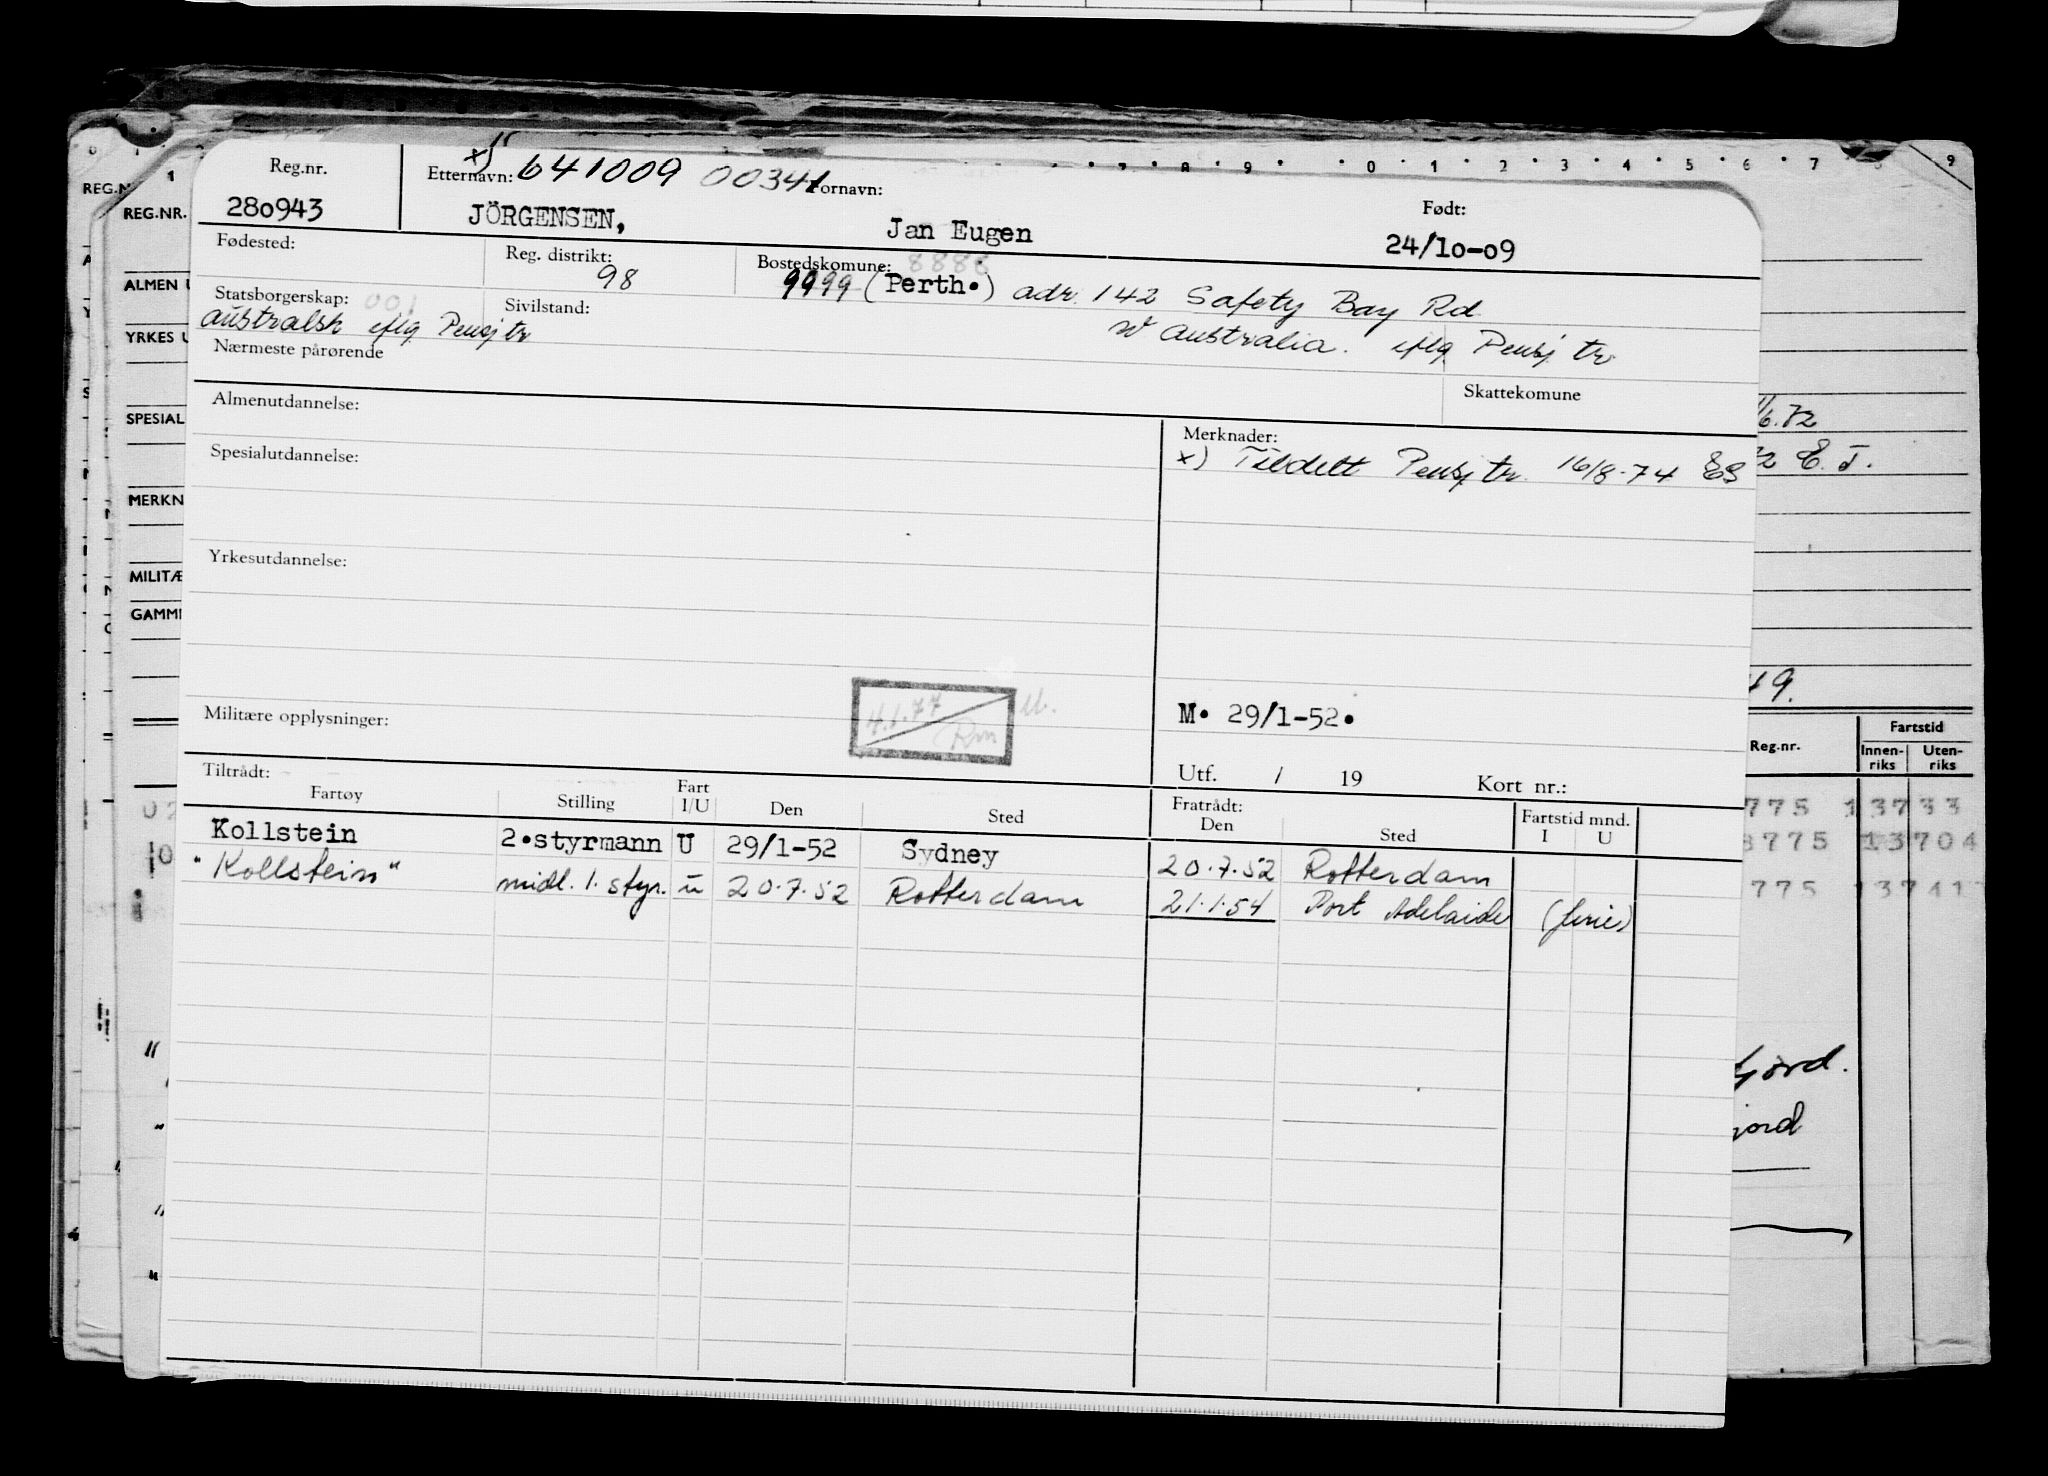 0 1 7 8 9 0 1 2 3 4 5 6 7 8 9
REG.NR.
ALMEN U
YRKES U
SPESIAL
MERKN
MILITÆ
GAMM
Reg.nr. x) Etternavn: 641009 00341 Fornavn: Født:
280943 JÖRGENSEN, Jan Eugen 24/10-09
Fødested: Reg. distrikt: 98 Bostedskomune: 8888
9999 (Perth.) adr. 142 Safety Bay Rd
Statsborgerskap: 001 Sivilstand: W Australia. iflg Pensj tr
australsk iflg Pensj tr
Nærmeste pårørende
Skattekomune
Almenutdannelse:
Merknader:
x) Tildelt Pensj tr. 16/8-74 ES
Spesialutdannelse:
Yrkesutdannelse:
Militære opplysninger:
4.1.77
Rm
M. 29/1-52.
Utf. / 19 Kort nr.:
Tiltrådt: Fratrådt:
Fartøy Stilling Fart I/U Den Sted Den Sted Fartstid mnd. I U
Kollstein 2.styrmann U 29/1-52 Sydney 20.7.52 Rotterdam
"Kollstein" midl. 1. styr. u 20.7.52 Rotterdam 21.1.54 Port Adelaide (ferie)
6.72
E. T.
19.
Reg.nr. Fartstid
Innen-riks Uten-riks
775 13733
8775 13704
775 13741
fjord.
jord